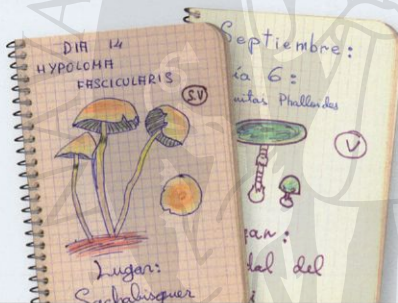 DIA 14
HYPOLOMA
FASCICULARIS
S.V
Lugar:
Septiembre:
ía 6:
Phalloides
V
gar:
del